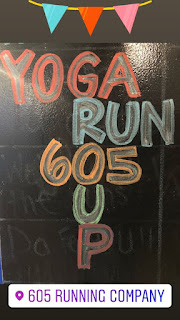 YOGA
RUN
605
U
P
605 RUNNING COMPANY